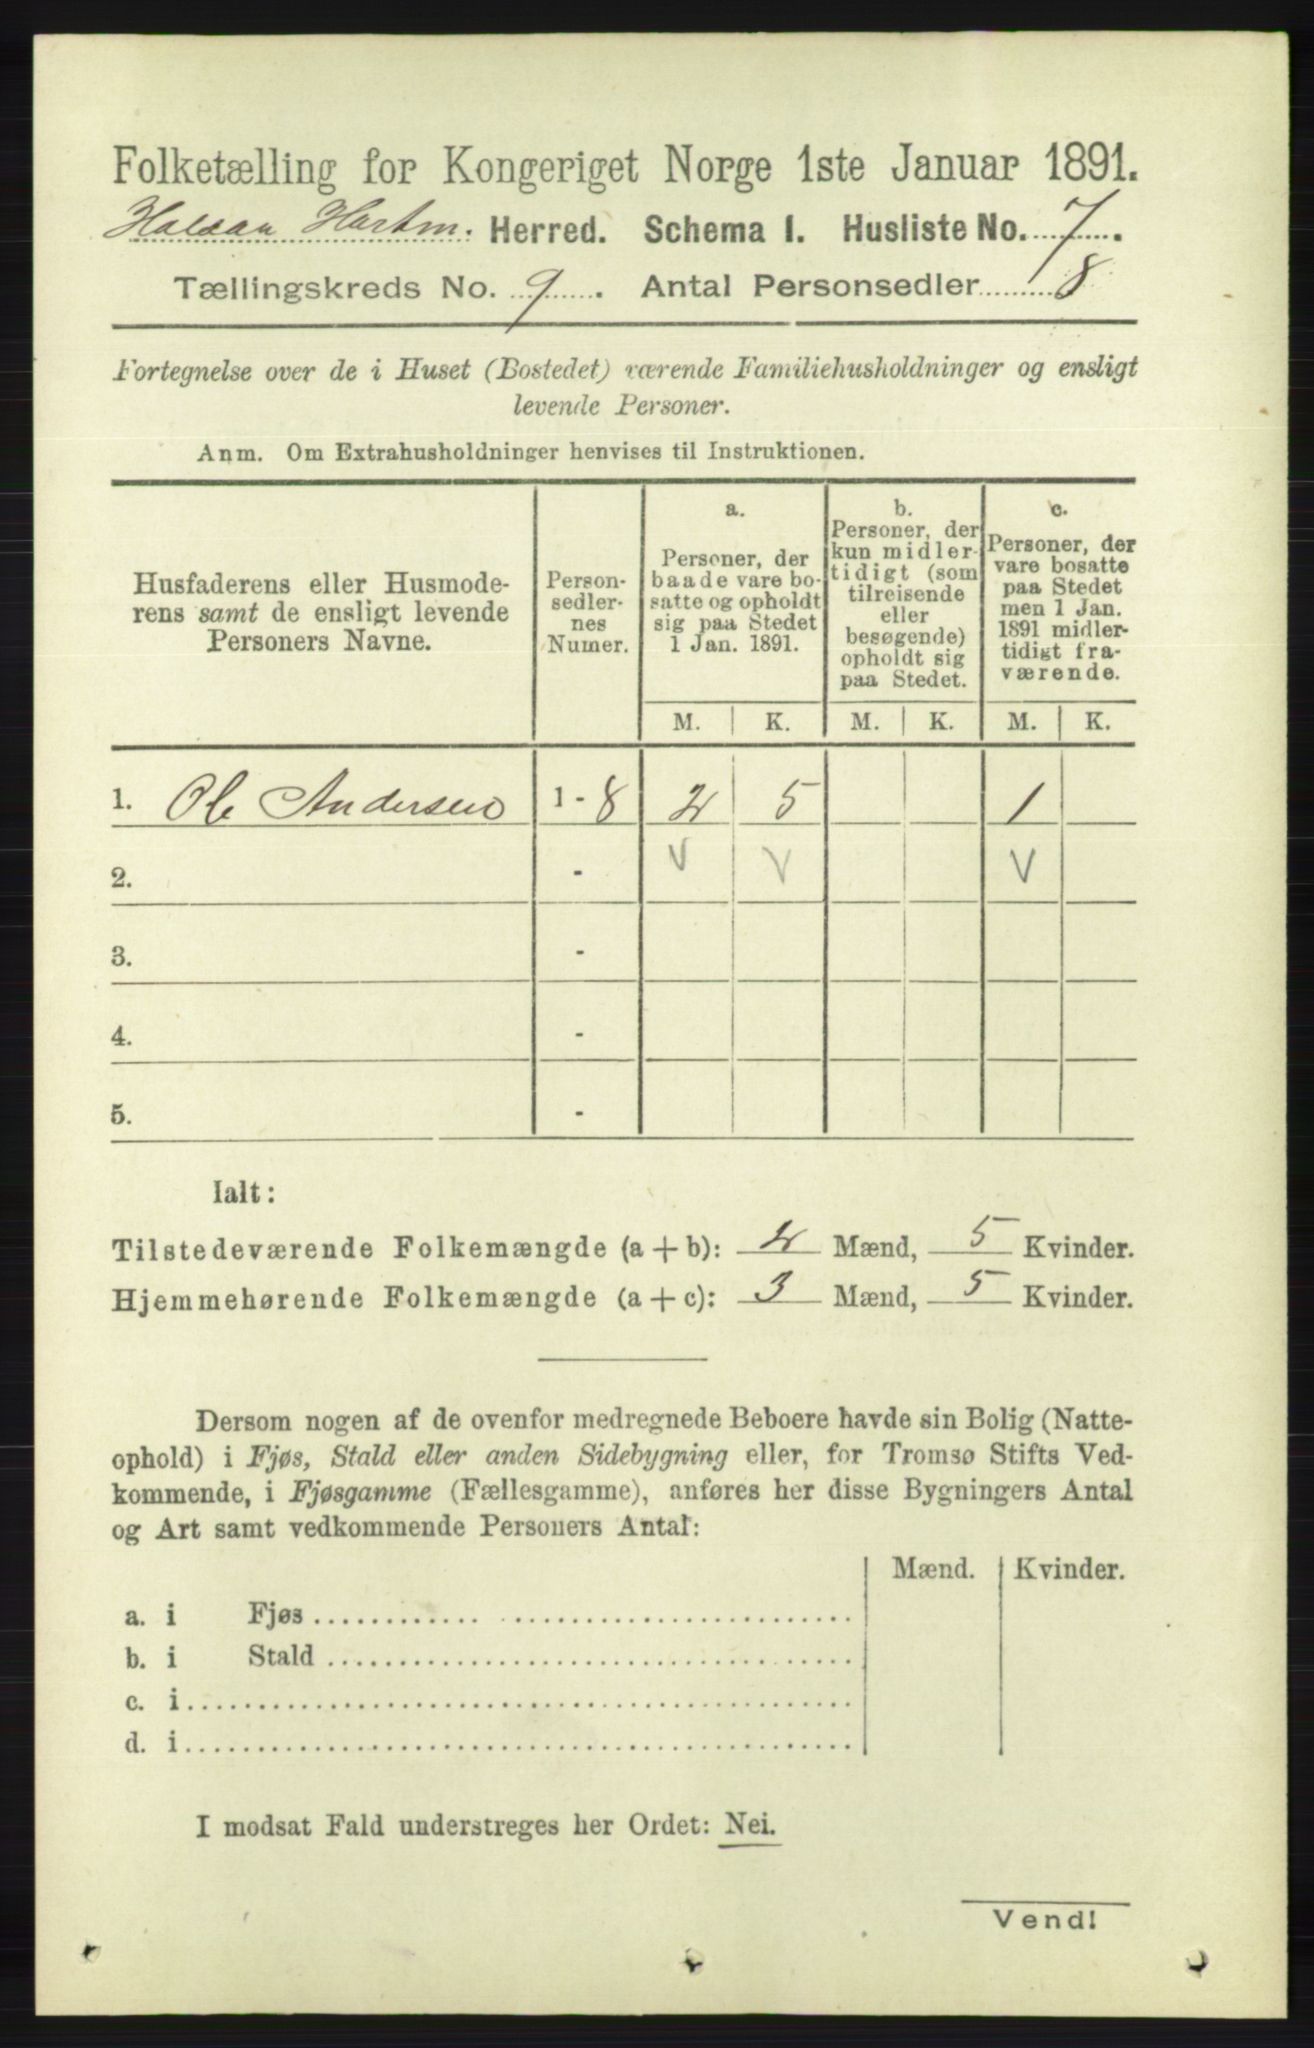 Folketælling for Kongeriget Norge 1ste Januar 1891.
Halsaa Herred. Schema I. Husliste No. 7.
Tællingskreds No. 9. Antal Personsedler 8
Fortegnelse over de i Huset (Bostedet) værende Familiehusholdninger og ensligt
levende Personer.
Anm. Om Extrahusholdninger henvises til Instruktionen.
Husfaderens eller Husmode-
rens samt de ensligt levende
Personers Navne.
Person-
sedler-
nes
Numer.
a.
Personer, der
baade vare bo-
satte og opholdt
sig paa Stedet
1 Jan. 1891.
b.
Personer, der
kun midler-
tidigt (som
tilreisende
eller
besøgende)
opholdt sig
paa Stedet.
c.
Personer, der
vare bosatte
paa Stedet
men 1 Jan.
1891 midler-
tidigt fra-
værende.
M. K. M. K. M. K.
1. Ole Andersen 1 - 8 2 5 1
2. - V V V
3. -
4. -
5. -
Ialt:
Tilstedeværende Folkemængde (a + b): 2 Mænd, 5 Kvinder.
Hjemmehørende Folkemængde (a + c): 3 Mænd, 5 Kvinder.
Dersom nogen af de ovenfor medregnede Beboere havde sin Bolig (Natte-
ophold) i Fjøs, Stald eller anden Sidebygning eller, for Tromsø Stifts Ved-
kommende, i Fjøsgamme (Fællesgamme), anføres her disse Bygningers Antal
og Art samt vedkommende Personers Antal:
Mænd. Kvinder.
a. i Fjøs
b. i Stald
c. i
d. i
I modsat Fald understreges her Ordet: Nei.
Vend!